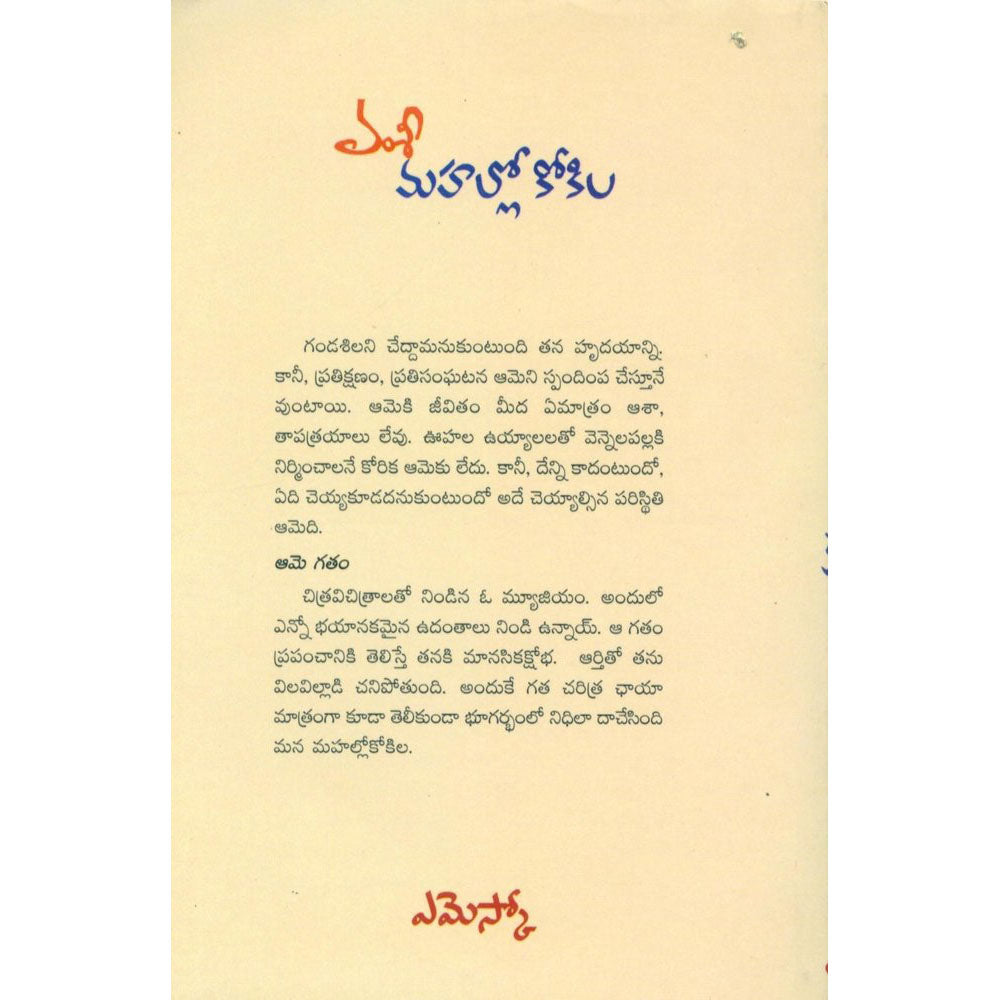 వంశీ
మహల్లో కోకిల
గండశిలని చేద్దామనుకుంటుంది తన హృదయాన్ని.
కానీ, ప్రతిక్షణం, ప్రతిసంఘటన ఆమెని స్పందింప చేస్తూనే
వుంటాయి. ఆమెకి జీవితం మీద ఏమాత్రం ఆశా,
తాపత్రయాలు లేవు. ఊహల ఉయ్యాలలతో వెన్నెలపల్లకి
నిర్మించాలనే కోరిక ఆమెకు లేదు. కానీ, దేన్ని కాదంటుందో,
ఏది చెయ్యకూడదనుకుంటుందో అదే చెయ్యాల్సిన పరిస్థితి
ఆమెది.
ఆమె గతం
చిత్రవిచిత్రాలతో నిండిన ఓ మ్యూజియం. అందులో
ఎన్నో భయానకమైన ఉదంతాలు నిండి ఉన్నాయ్. ఆ గతం
ప్రపంచానికి తెలిస్తే తనకి మానసికక్షోభ. ఆర్తితో తను
విలవిల్లాడి చనిపోతుంది. అందుకే గత చరిత్ర ఛాయా
మాత్రంగా కూడా తెలీకుండా భూగర్భంలో నిధిలా దాచేసింది
మన మహల్లోకోకిల.
ఎమెస్కో